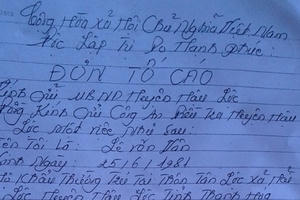 Cộng Hòa xã Hội Chủ Nghĩa Việt Nam
Độc Lập Tự Do Hạnh phúc.
ĐƠN TỐ CÁO
Kính Gửi UBND Huyện Hậu Lộc
Đồng Kính Gửi Công An Điều tra Huyện Hậu
Lộc một Việc Như Sau:
Tên Tôi Là: Lê Văn Vân
Sinh Ngày: 25/6/1981
Hộ Khẩu Thường Trú Tại Thôn Tân Lộc xã
Lộc Huyện Hậu Lộc Tỉnh Thanh Hóa